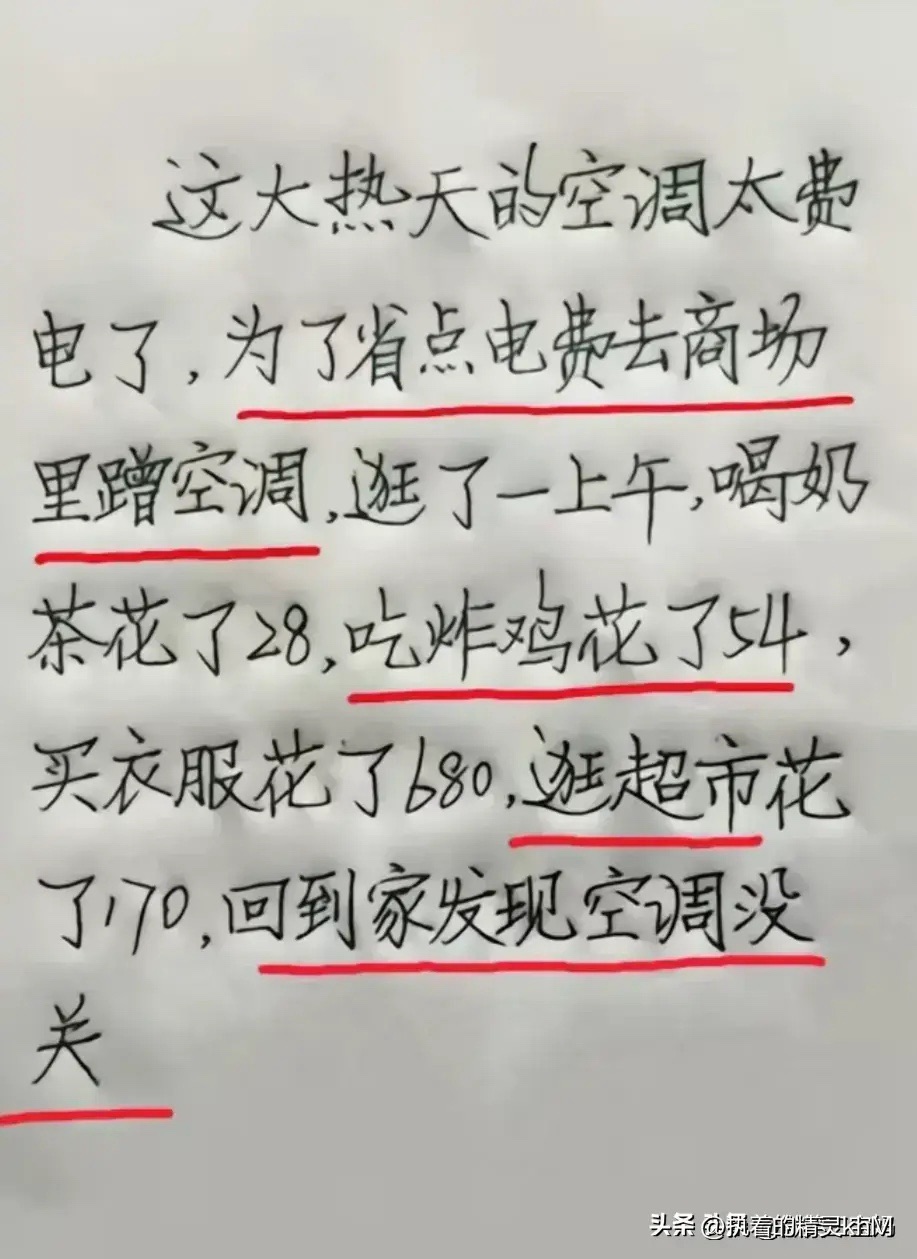 这大热天的空调太费
电了,为了省点电费去商场
里蹭空调,逛了一上午,喝奶
茶花了28,吃炸鸡花了54,
买衣服花了680,逛超市花
了170,回到家发现空调没
关
头条 @执着的精灵